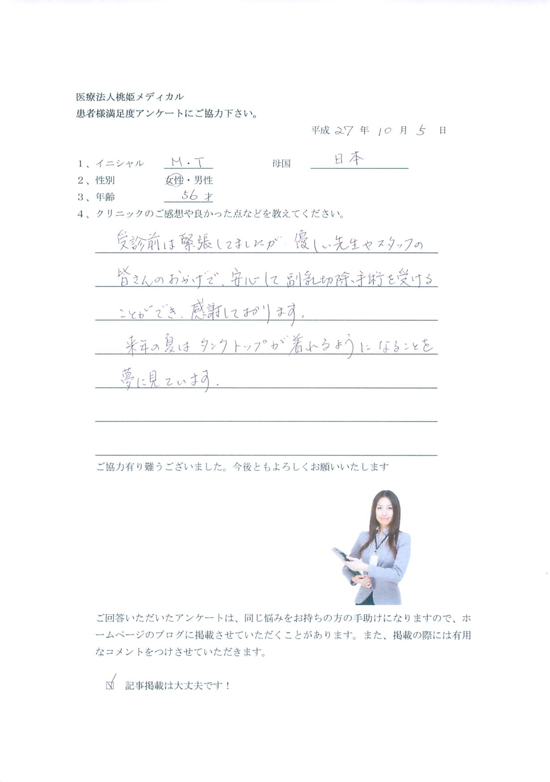 医療法人桃姫メディカル
患者様満足度アンケートにご協力下さい。
平成 27 年 10 月 5 日
1、イニシャル M・T 母国 日本
2、性別 女性・男性
3、年齢 56 才
4、クリニックのご感想や良かった点などを教えてください。
受診前は緊張してましたが 優しい先生やスタッフの
皆さんのおかげで、安心して副乳切除手術を受ける
ことができ、感謝しております。
来年の夏はタンクトップが着れるようになることを
夢に見ています。
ご協力有り難うございました。今後ともよろしくお願いいたします
ご回答いただいたアンケートは、同じ悩みをお持ちの方の手助けになりますので、ホ
ームページのブログに掲載させていただくことがあります。また、掲載の際には有用
なコメントをつけさせていただきます。
☑ 記事掲載は大丈夫です！